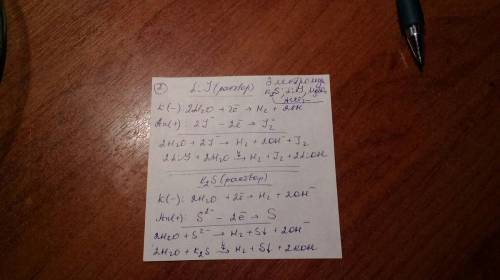 ② LiJ (раствор) Электролиз
K₂S, LiJ,
K(-): 2H₂O + 2ē → H₂ + 2OH⁻
An(+): 2J⁻ - 2ē → J₂
2H₂O + 2J⁻ → H₂ + 2OH⁻ + J₂
2LiJ + 2H₂O → H₂ + J₂ + 2LiOH
K₂S (раствор)
K(-): 2H₂O + 2ē → H₂ + 2OH⁻
An(+): S²⁻ - 2ē → S
2H₂O + S²⁻ → H₂ + S↓ + 2OH⁻
2H₂O + K₂S → H₂ + S↓ + 2KOH